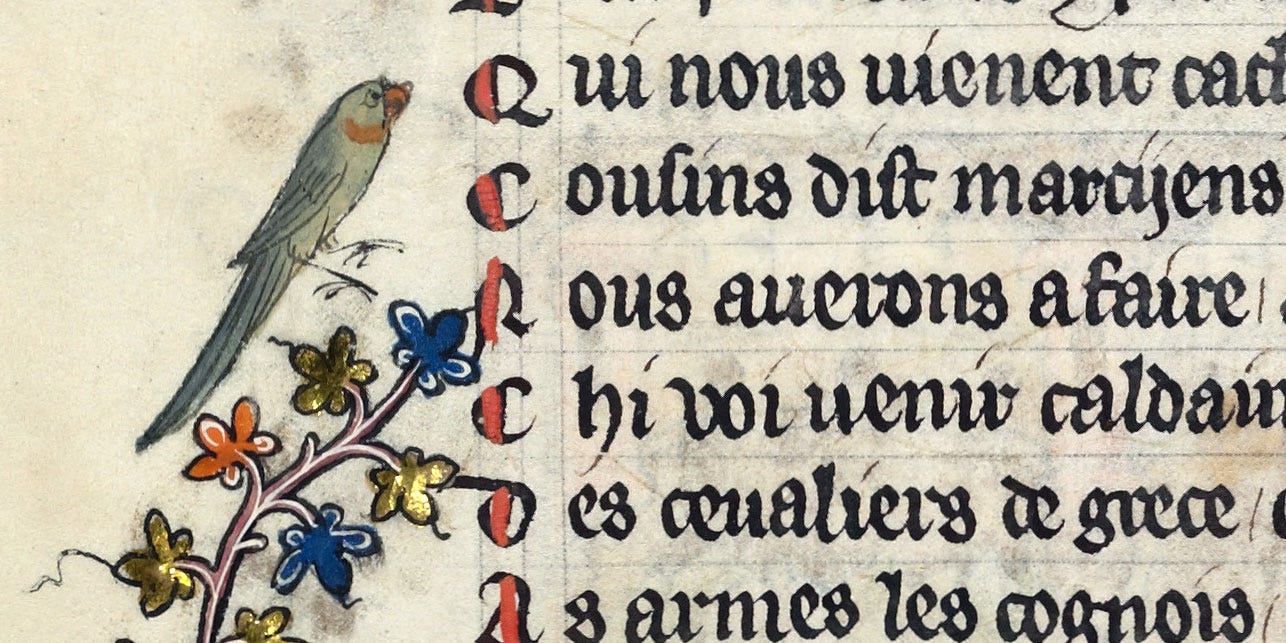 Qui nous uienent cach
Cousins dist marcijens
Nous auerons a faire
Chi voi uenir caldain
Des ceualiers de grece
As armes les cognois